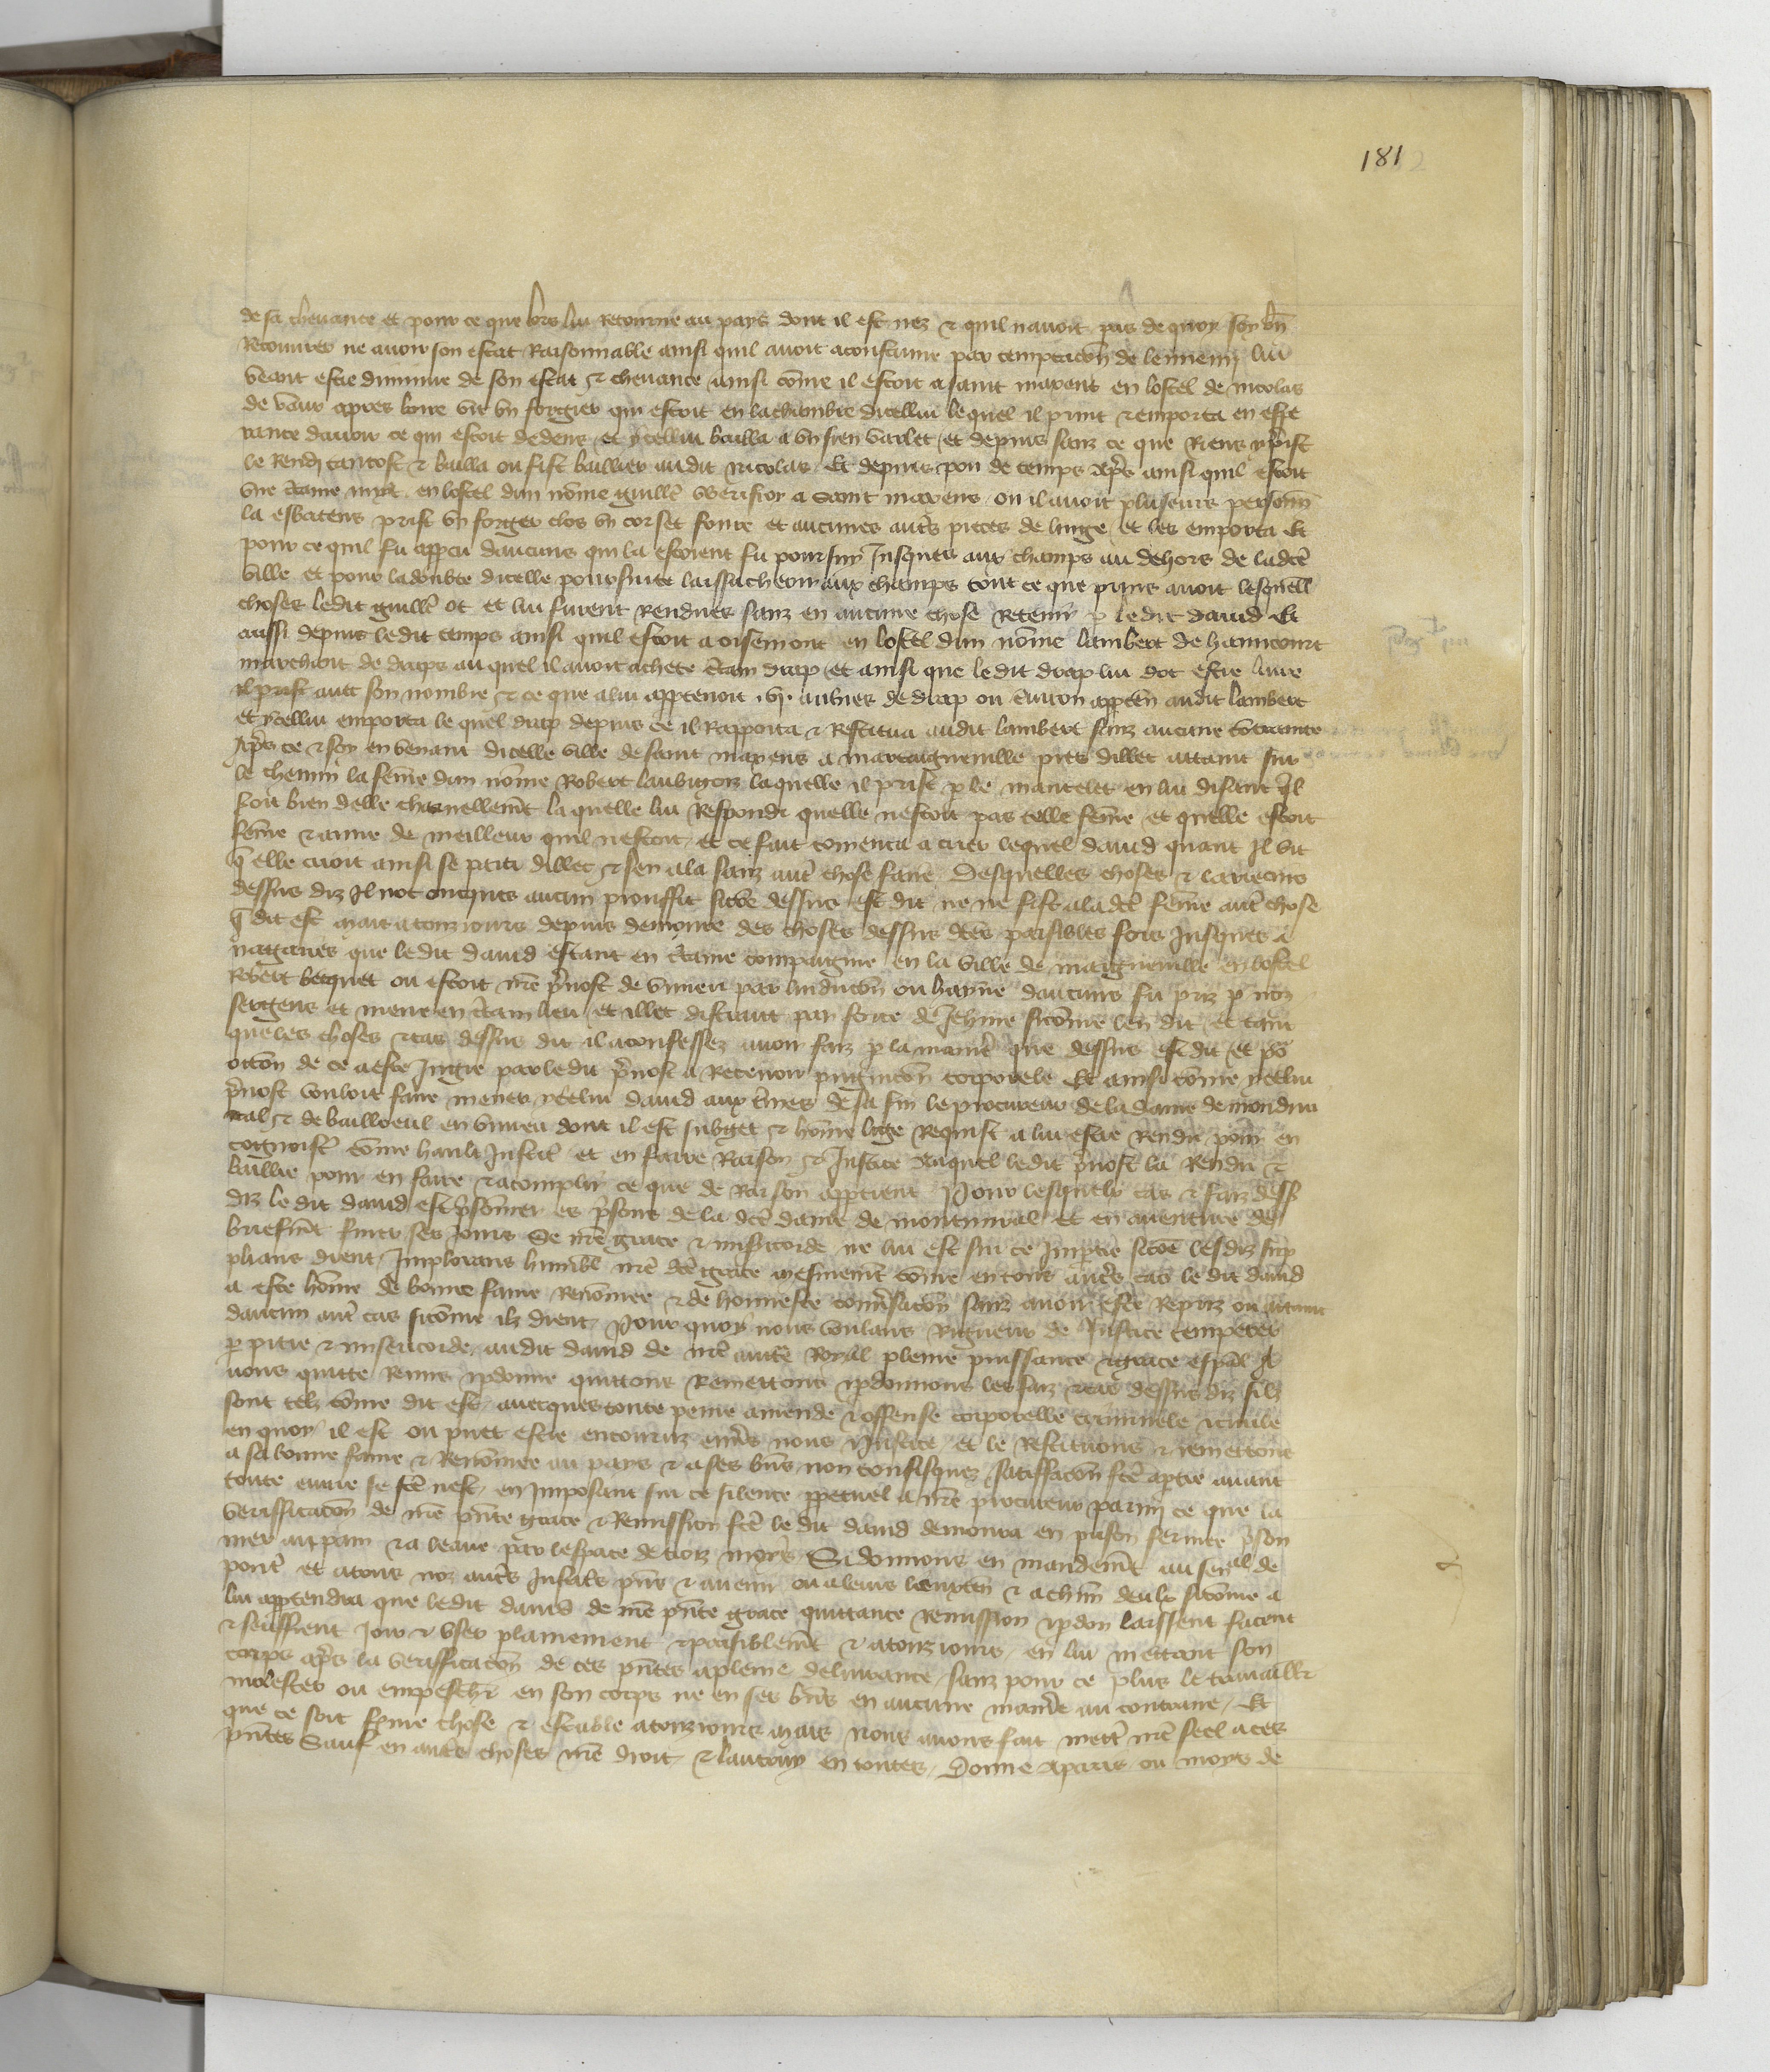 181
de sa chevance et pour ce que lors lui retourne au pays dont il est nez & quil navoit pas de quoy soy bn̄
Recouvrer ne avoir son estat Raisonnable ainsi quil avoit acoustume par temptacōn de lennemi lui
veant estre diminue de son estat & chevance ainsi cōme il estoit a saint maxent en lostel de nicolas
de vaur apres boire vit vn forgier qui estoit en la chambre dicellui lequel il print & emporta en espe
rance davoir ce qui estoit dedens et ycellui bailla a vn sien varlet et depuis sanz ce que Riens y prist
le Rendi tantost & bailla ou fist baillier audit nicolas Et depuis pou de temps apr̄s ainsi quil estoit
vne c̄taine nuit en lostel dun nōme guillē a saint maxens ou il avoit pluseurs personn̄
la esbatens prist vn forgier clos vn corset fourre et aucunes autr̄s pieces de linge et les emporta Et
pour ce quil fu app̄ceu daucuns qui la estoient fu poursuy Jusques aux champs au dehors de ladc̄te
ville et pour la doubte dicelle poursuite laissa cheoir aux champs tout ce que prins avoit lesquell̄
choses ledit guillē ot et lui furent Rendues sanz en aucune chose Retenir p̄ le dit david Et
aussi depuis ledit temps ainsi quil estoit a oisemont en lostel dun nōme lambert de hannicourt
marchant de draps au quel il avoit achete c̄tain drap et ainsi que le dit drap lui dot estre livre
il prist avec son nombre & ce que a lui app̄tenoit .vj. aulnes de drap ou environ app̄ten̄ audit lambert
et ycellui emporta le quel drap depuis ce il Rapporta & Restitua audit lambert sanz aucune contrainte
Apr̄s ce & soy en venant dicelle ville de saint maxens a martaigneville pres dillec attaint sur
le chemin la fēme dun nōme Robert laquelle il prist p̄ le mantelet en lui disant Jl
fou bien delle charnellemēt la quelle lui Respondi quelle nestoit pas telle fēme et quelle estoit
fēme & amie de meilleur quil nestoit et ce fait cōmenca a crier lequel david quant Jl vit
q̄ elle crioit ainsi se p̄ti dillec & sen ala sanz aut̄ chose faire Desquelles choses & larrecins
dessus diz Jl not oncques aucun prouffit sicōe dessus est dit ne ne fist a la dc̄te fēme aut̄ chose
q̄ dit est mais a touz iours depuis demoure des choses dessus dc̄tes paisibles fors Jusques a
nagaires que ledit david estant en c̄taine compaignie en la ville de maigneville en lostel
Robert becquet ou estoit nr̄e p̄vost de vimeu par Jnducōn ou hayne daucuns fu priz p̄ noz
sergens et mene en c̄tain lieu et illec distraut par force de Jehine sicōme len dit et tant
que les choses & cas dessus dit il a confessez avoir faiz p̄ la manie᷑ que dessus est dit et po᷑
occōn de ce a este Jugie par ledit p̄vost a Recevoir pugnicōn corporele Et ainsi cōme ycellui
p̄vost vouloit faire mener ycellui david aux t̄mes de sa fin le procureur de la dame de mondui
ral & de bailloeul en vimeu dont il est subget & hōme lige Requist a lui estre Rendu pour en
cognoistr̄ cōme hault Justic̄ et en faire Raison & Justice Auquel ledit p̄vost la Rendu &
baillie pour en faire & acomplir ce que de Raison app̄tient Pour lesquelx cas & faiz dess̄
diz le dit david est p̄sonnier es p̄sons de la dc̄te dame de montinral et en aventure de
briefmēt finer ses Jours Se nr̄e grace & miscorde ne lui est sur ce Jmp̄tie sicōe lesdiz sup
plians dient Jmplorans humblēt nr̄e dc̄te grace mesmemēt cōme en tous autr̄s cas le dit david
a este hōme de bonne fame Renōmee & de honneste conv̄sacōn sanz avoir este Repriz ou attaint
daucun aut̄ cas sicōme ilz dient Pour quoy nous voulans Rigueur de Justice temperer
p̄ pitie & misericorde audit david de nr̄e auctē Royal pleine puissance & grace esp̄al a
vons quitte Remis & p̄donne quittons Remettons & p̄donnons les faiz & cas dessus diz silz
sont telz cōme dit est avecques toute peine amende & offense corporelle criminele & civile
en quoy il est ou puet estre encouruz env̄s nous & Justice et le Restituons & remettons
a sa bonne fame & Renōmee au pays & a ses bn̄s non confisquez satisfacōn fc̄te a p̄tie avant
toute euvre se fc̄te nest en Jmposant sur ce silence p̄petuel a nr̄e procureur parmi ce que la
verifficacōn de nr̄e pn̄te grace & Remission fc̄te le dit david demourra en prison fermee p̄son
nier au pain & a leaue par lespace de troiz moys Si donnons en mandemēt au senal de
pontī et a tous noz autr̄s Justic̄s pn̄s & avenir ou a leurs lieuxten̄ & a chūn deulx sicōme a
lui app̄tendra que ledit david de nr̄e pn̄te grace quittance Remission & p̄don laissent facent
& seuffrent Joir & vser plainement & paisiblemēt & a touz iours en lui mettant son
corps apr̄s la verifficacōn de ces pn̄tes a pleine delivrance sanz pour ce plus le travaillr̄
molester ou empeschr̄ en son corps ne en ses bn̄s en aucune manie᷑ au contraire Et
que ce soit ferme chose & estable a touz iours mais nous avons fait mett̄ nr̄e seel a ces
pn̄tes Sauf en autr̄s choses nr̄e droit & lautruy en toutes Donne a paris ou moys de